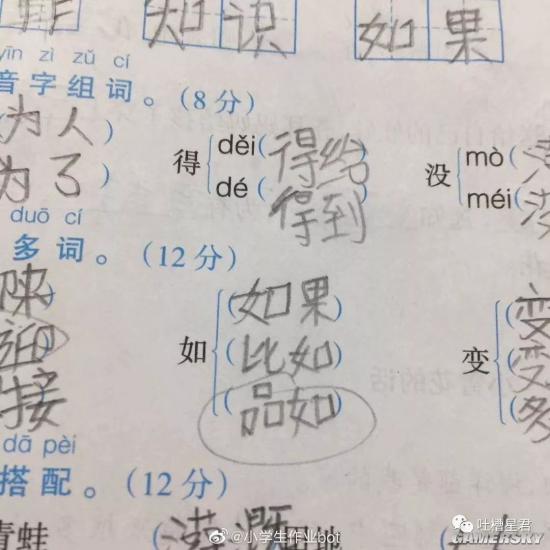 知识 如果
yīn zì zǔ cí
音字组词。(8分)
为人)
为了)
得 děi(得给)
dé(得到)
没 mò(
méi(
duō cí
多词。(12分)
如 (如果)
(比如)
(品如)
变 (变
(变
(多
迎
接
dā pèi
搭配。(12分)
青蛙
@小学生作业bot
吐槽星君
GAMERSKY